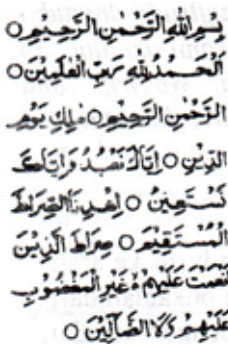 بِسْمِ اللهِ الرَّحْمٰنِ الرَّحِيْمِ ○
اَلْحَمْدُ لِلهِ رَبِّ الْعٰلَمِيْنَ ○
الرَّحْمٰنِ الرَّحِيْمِ ○ مٰلِكِ يَوْمِ
الدِّيْنِ ○ اِيَّاكَ نَعْبُدُ وَاِيَّاكَ
نَسْتَعِيْنُ ○ اِهْدِنَا الصِّرَاطَ
الْمُسْتَقِيْمَ ○ صِرَاطَ الَّذِيْنَ
نْعَمْتَ عَلَيْهِمْ ۵ غَيْرِ الْمَغْضُوْبِ
عَلَيْهِمْ وَلَا الضَّآلِّيْنَ ○